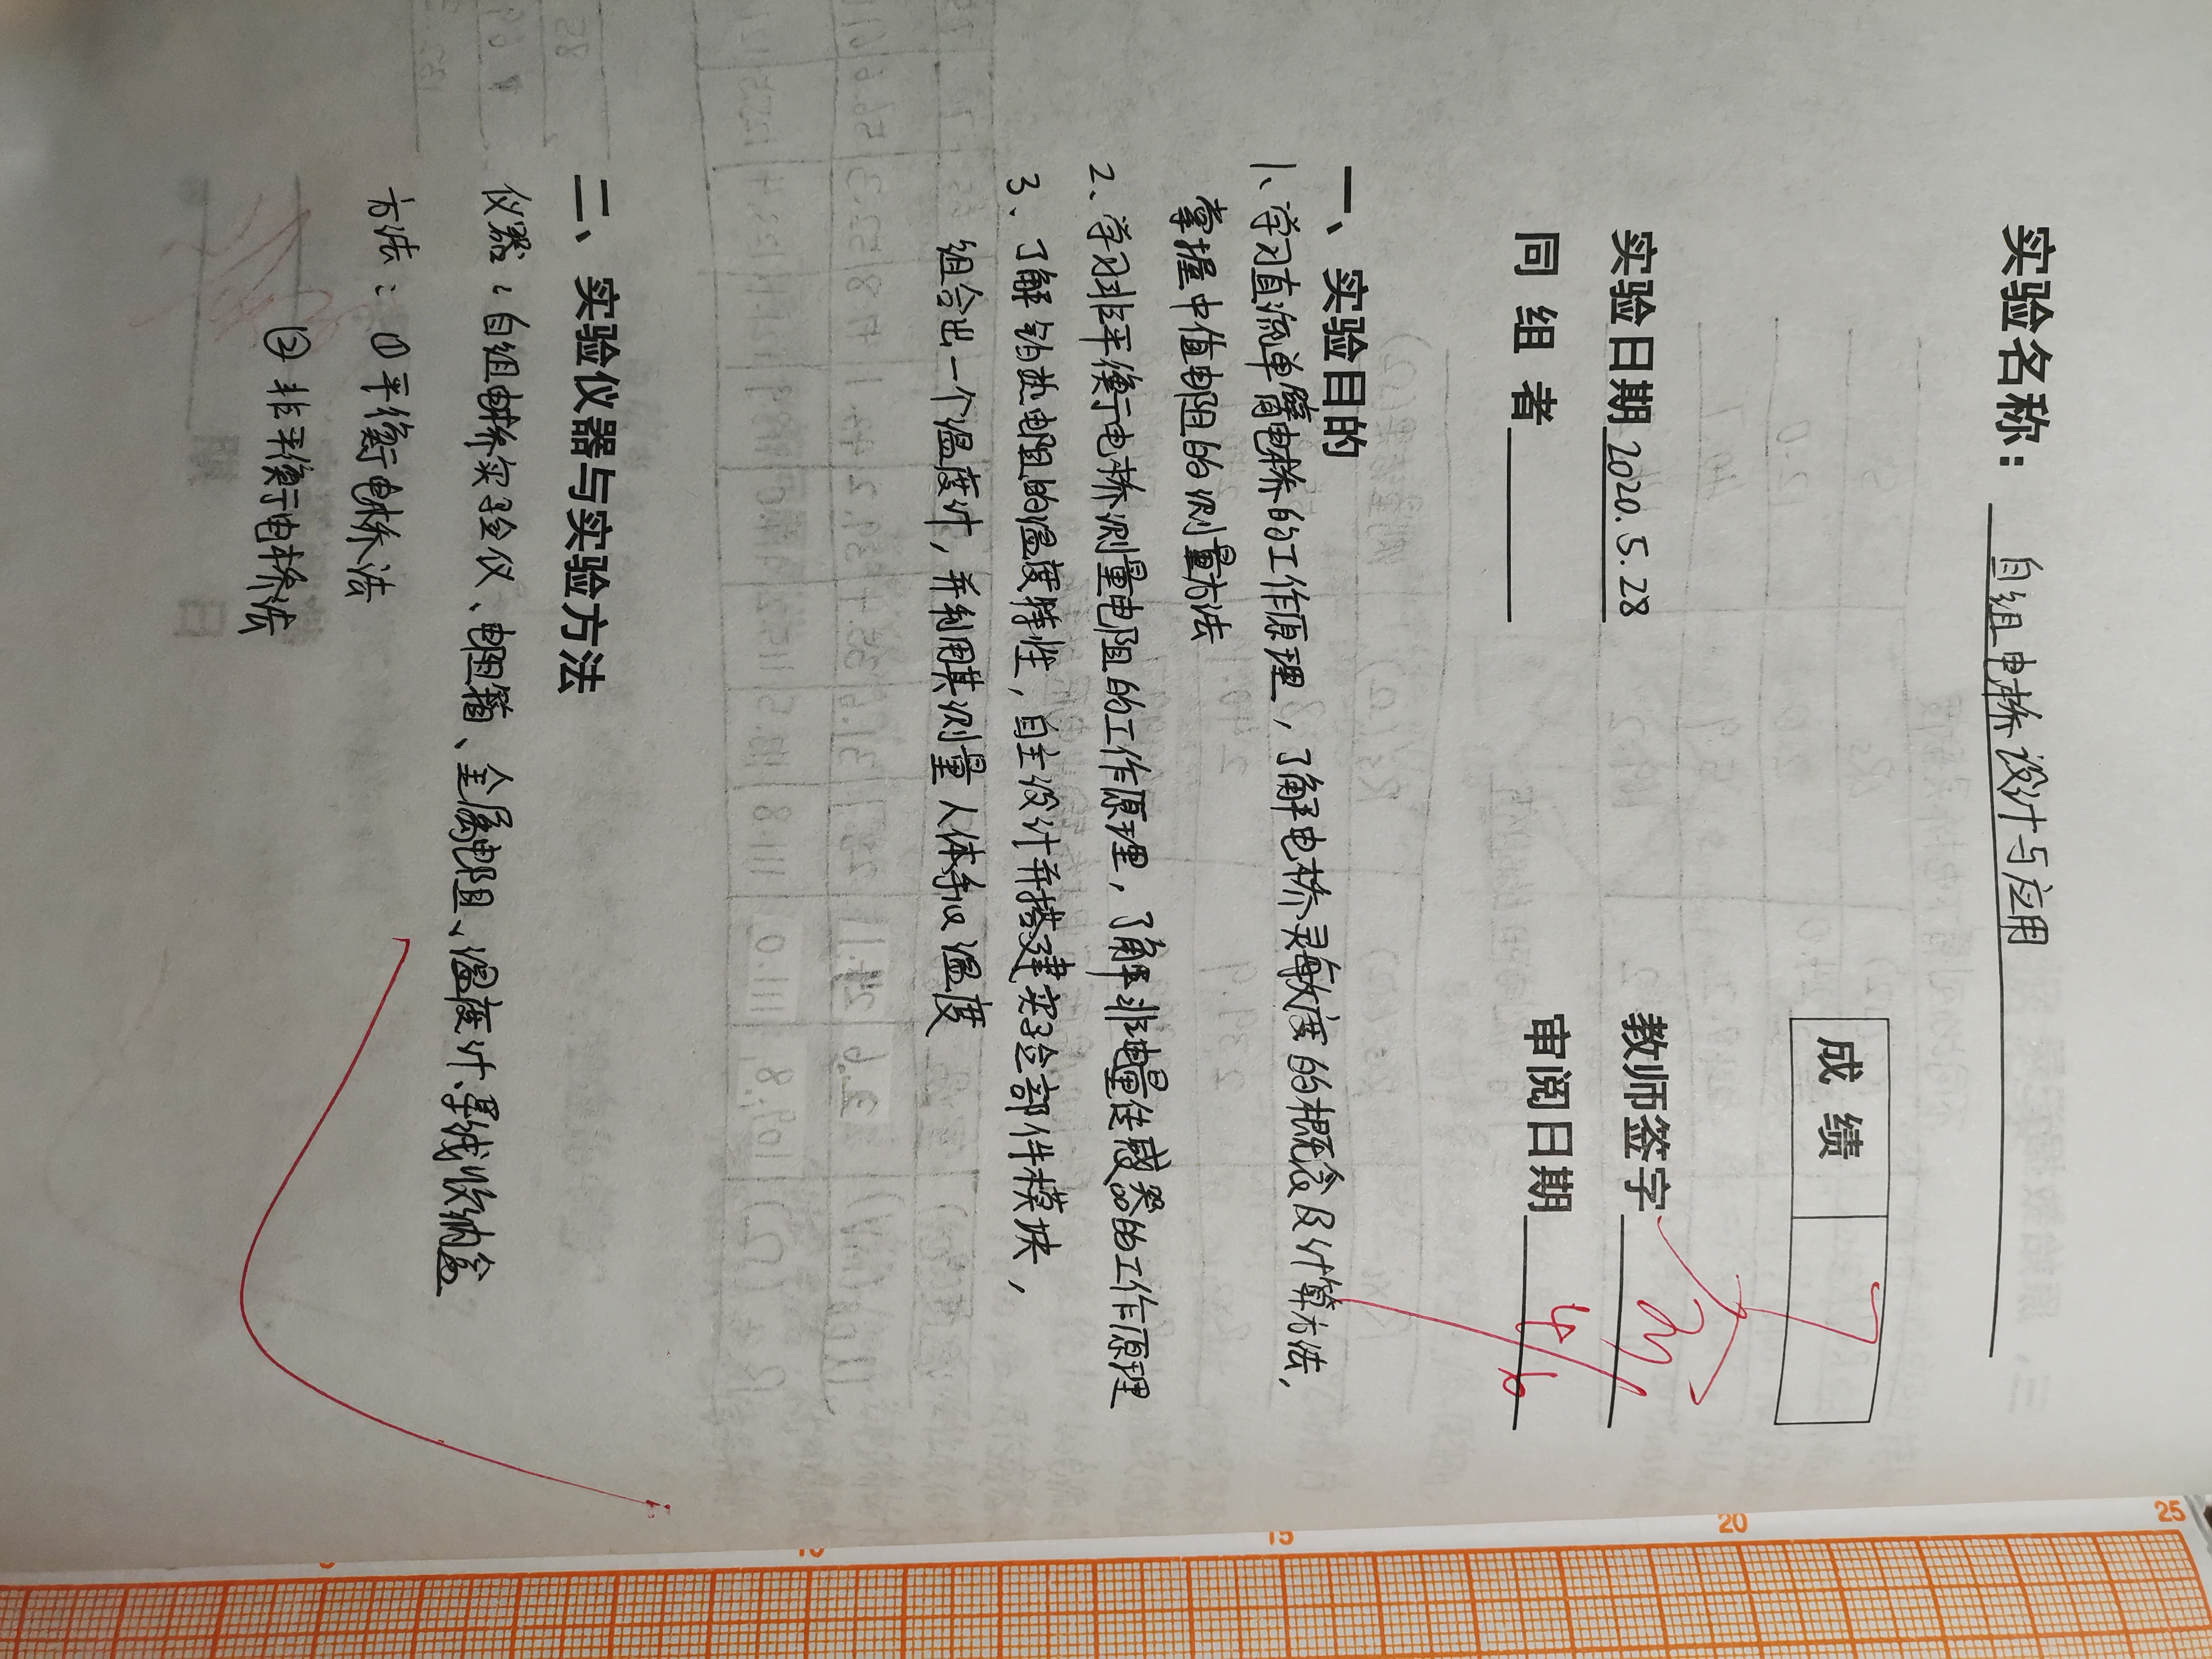 实验名称：自组电桥设计与应用
成绩 7
实验日期 2020.5.28 教师签字
同组者 审阅日期 4/6
一、实验目的
1、学习直流单臂电桥的工作原理，了解电桥灵敏度的概念及计算方法，
掌握中值电阻的测量方法
2、学习非平衡电桥测量电阻的工作原理，了解非电量传感器的工作原理
3、了解铂热电阻的温度特性，自主设计并搭建实验部件模块，
组合出一个温度计，并利用其测量人体手心温度
二、实验仪器与实验方法
仪器：自组电桥实验仪、电阻箱、金属电阻、温度计、导线收纳盒
方法：①平衡电桥法
②非平衡电桥法
15
20
25